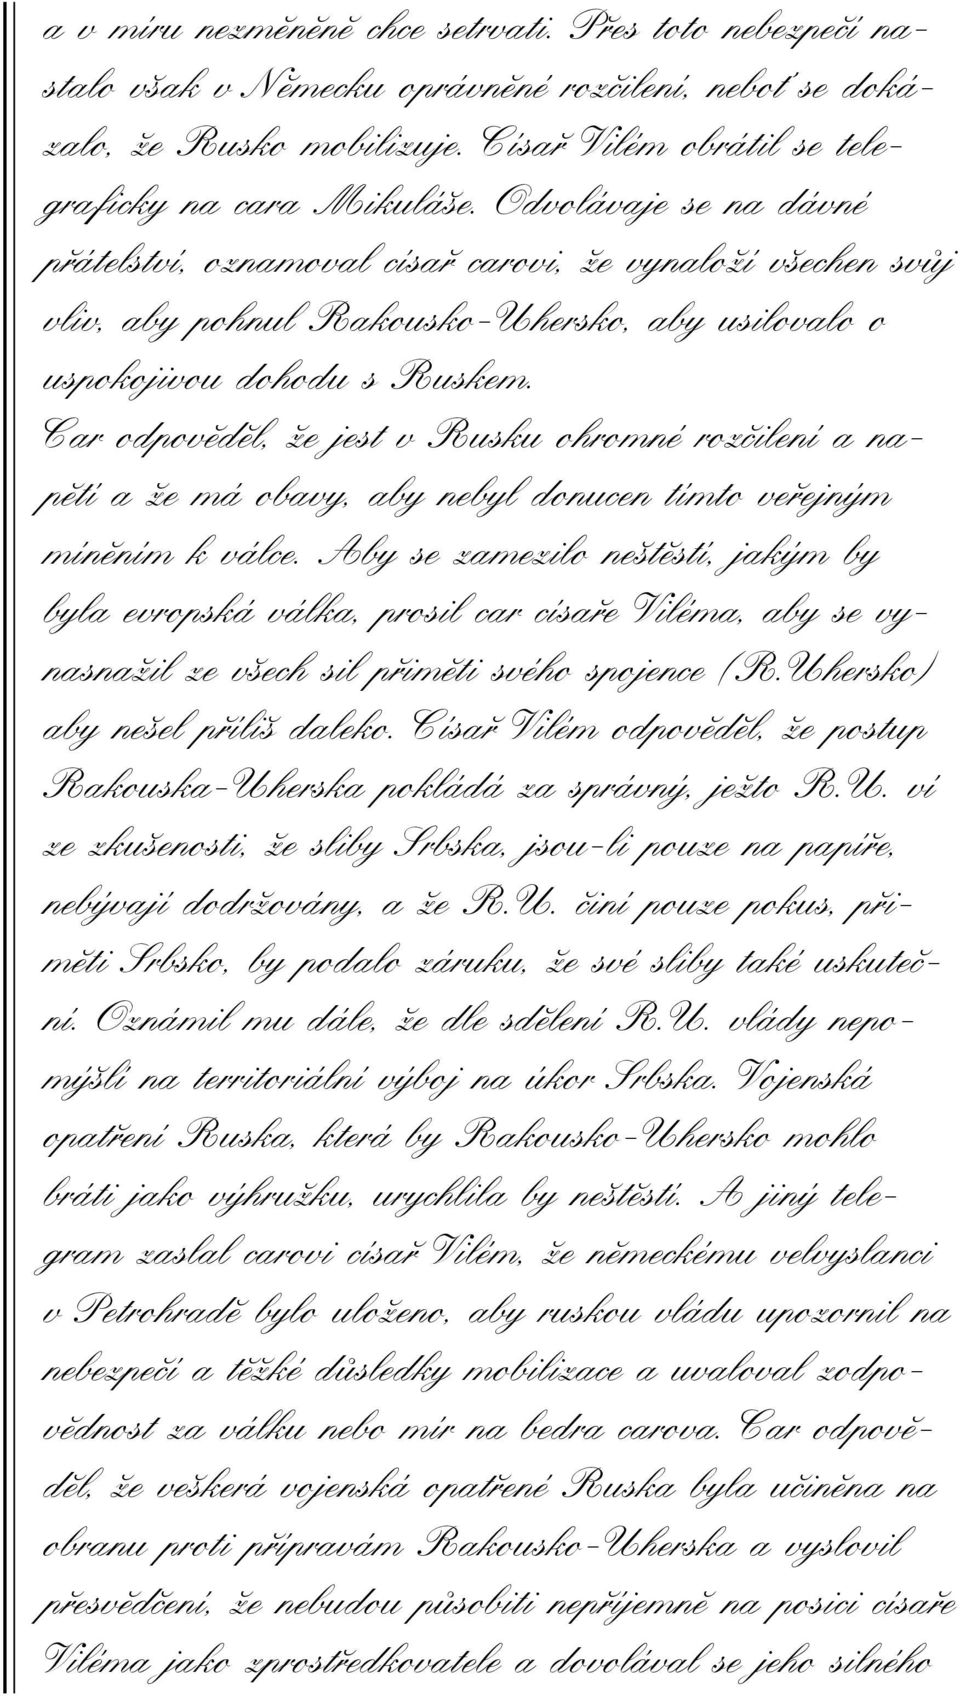 a v míru nezměněně chce setrvati. Přes toto nebezpečí na-
stalo však v Německu oprávněné rozčilení, neboť se doká-
zalo, že Rusko mobilizuje. Císař Vilém obrátil se tele-
graficky na cara Mikuláše. Odvolávaje se na dávné
přátelství, oznamoval císař carovi, že vynaloží všechen svůj
vliv, aby pohnul Rakousko-Uhersko, aby usilovalo o
uspokojivou dohodu s Ruskem.
Car odpověděl, že jest v Rusku ohromné rozčilení a na-
pětí a že má obavy, aby nebyl donucen tímto veřejným
míněním k válce. Aby se zamezilo neštěstí, jakým by
byla evropská válka, prosil car císaře Viléma, aby se vy-
nasnažil ze všech sil přiměti svého spojence (R.Uhersko)
aby nešel příliš daleko. Císař Vilém odpověděl, že postup
Rakouska-Uherska pokládá za správný, ježto R.U. ví
ze zkušenosti, že sliby Srbska, jsou-li pouze na papíře,
nebývají dodržovány, a že R.U. činí pouze pokus, při-
měti Srbsko, by podalo záruku, že své sliby také uskuteč-
ní. Oznámil mu dále, že dle sdělení R.U. vlády nepo-
mýšlí na territoriální výboj na úkor Srbska. Vojenská
opatření Ruska, která by Rakousko-Uhersko mohlo
bráti jako výhružku, urychlila by neštěstí. A jiný tele-
gram zaslal carovi císař Vilém, že německému velvyslanci
v Petrohradě bylo uloženo, aby ruskou vládu upozornil na
nebezpečí a těžké důsledky mobilizace a uvaloval zodpo-
vědnost za válku nebo mír na bedra carova. Car odpově-
děl, že veškerá vojenská opatřené Ruska byla učiněna na
obranu proti přípravám Rakousko-Uherska a vyslovil
přesvědčení, že nebudou působiti nepříjemně na posici císaře
Viléma jako zprostředkovatele a dovolával se jeho silného